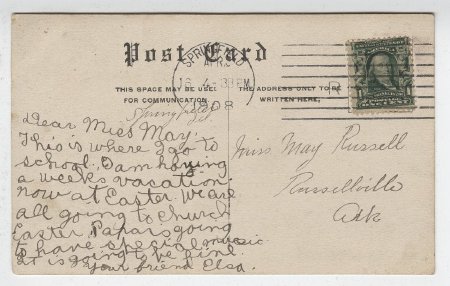 Post Card
SPRINGFIELD
APR
16 4-30PM
1908
THIS SPACE MAY BE USED
FOR COMMUNICATION.
THE ADDRESS ONLY TO BE
WRITTEN HERE,
R
Dear Miss May.
This is where I go to
school. I am having
a weeks vacation
now at Easter. We are
all going to church
Easter. Papa is going
to have special music
It is going to be fine.
Your friend Elsa.
Miss May Russell
Russellville
Ark